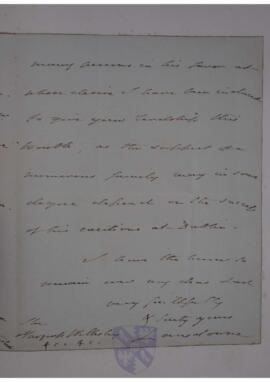 many persons in his favor at
whose desire I have been induced
to give your Lordship this
trouble, as the support of a
numerous family may in some
degree depend on the success
of his exertions at Dublin.
I have the honor to
remain ever my dear Lord
very faithfully
& truly yours
The
Marquis Wellesley Lansdowne
&c. &c.